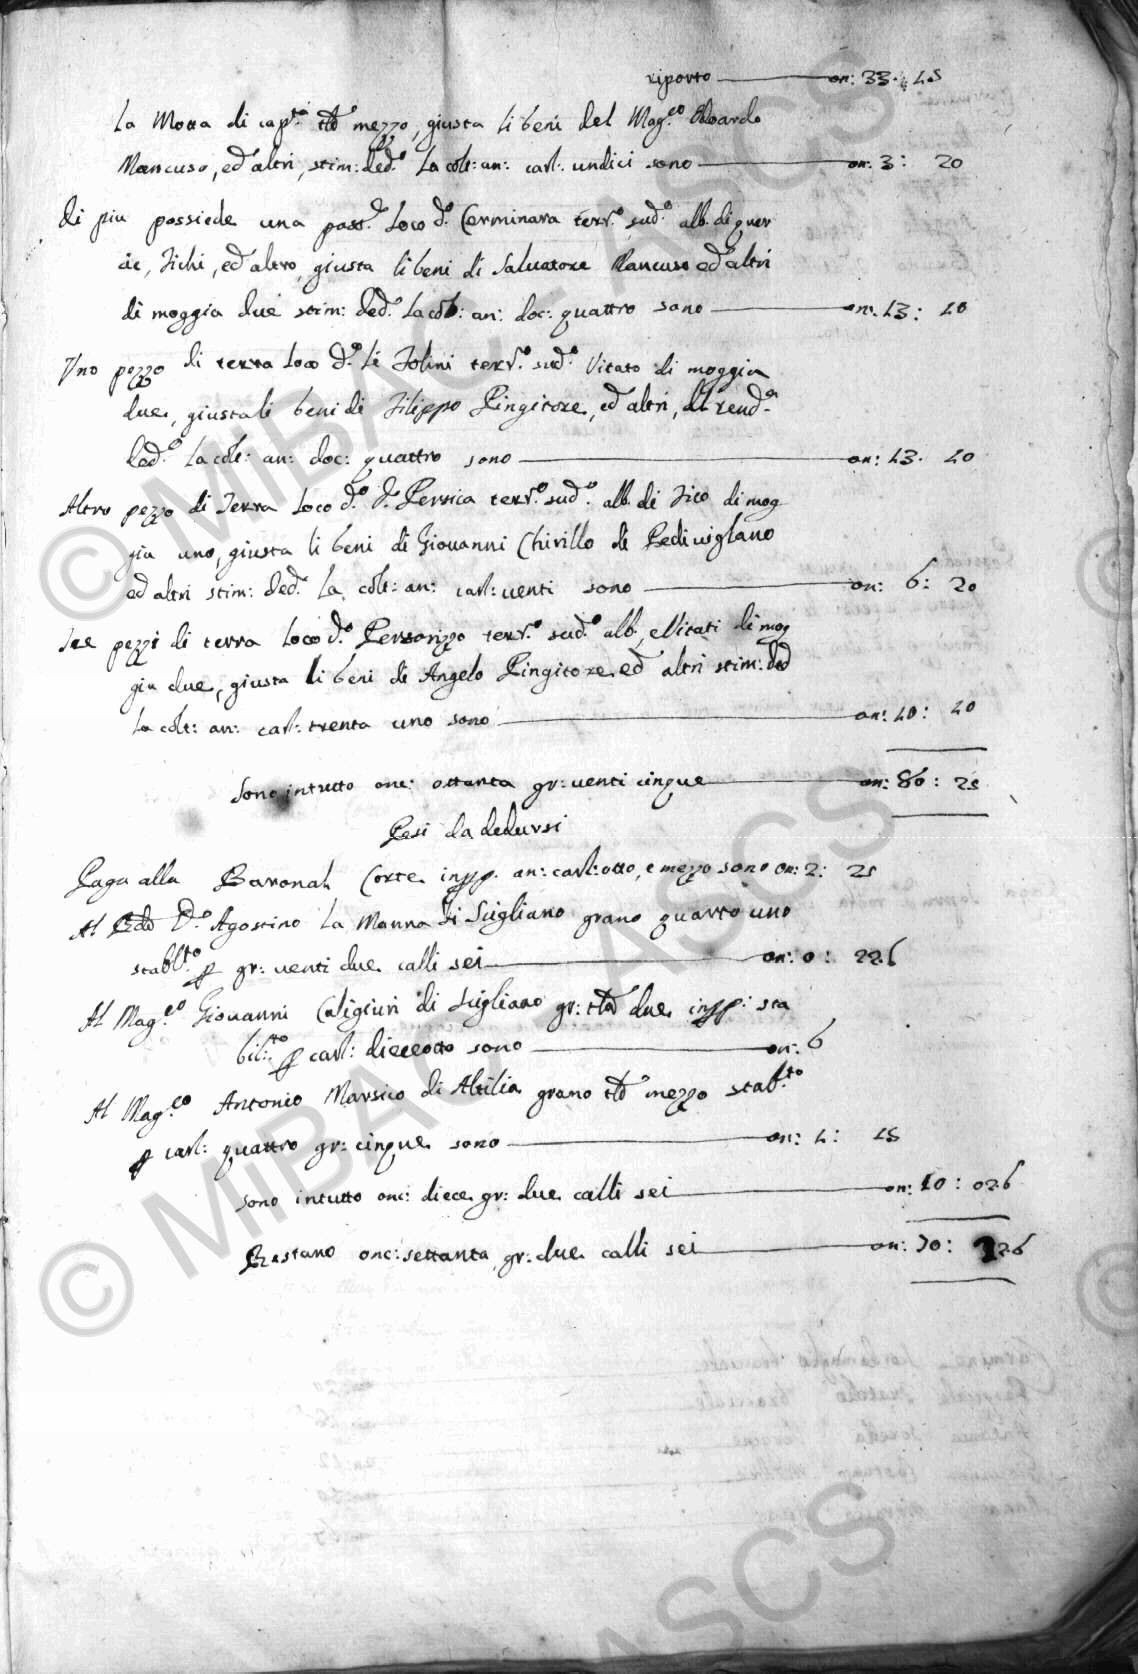 riporto on: 33: 15
La Motta di cap.tà ttō mezzo, giusta li beni del Mag.co Edoardo
Mancuso, ed altri, stim: ded.o La colt: an: carl: undici sono on: 3: 20
Di piu possiede una poss.e Loco d.o Cerminara terr.o sud.o alb. di quer
cie, Fichi, ed altro, giusta li beni di Salvatore Mancuso ed altri
di moggia due stim: ded.o La colt: an: doc: quattro sono on: 13: 10
Uno pezzo di terra Loco d.o Li Folini terr.o sud.o Vitato di moggia
due, giusta li beni di Filippo Pingitore, ed altri, di rend.a
ded.o La colt: an: doc: quattro sono on: 13. 10
Altro pezzo di Terra Loco d.o Persica terr.o sud.o alb. di Fico di mog
gia uno, giusta li beni di Giovanni Chirillo di Pedivigliano
ed altri stim: ded.o La colt: an: carl: venti sono on: 6: 20
Tre pezzi di terra Loco d.o terr.o sud.o alb., e Vitati di mog
gia due, giusta li beni di Angelo Pingitore, ed altri stim: ded
La colt: an: carl: trenta uno sono on: 10: 10
Sono intutto onc: ottanta gr: venti cinque on: 80: 25
Pesi da dedursi
Paga alla Baronal Corte in an: carl: otto, e mezzo sono on: 2: 25
Al D.o Agostino La Manna di Scigliano grano quarto uno
stabil.to p gr: venti due calli sei on: 0: 22.6
Al Mag.co Giovanni Caligiuri di Scigliano gr: ttō due, in sta
bil:to p carl: dieceotto sono on: 6
Al Mag.co Antonio Marsico di Altilia grano ttō mezzo stab.to
p carl: quattro gr: cinque sono on: 1: 15
Sono intutto onc: diece gr: due calli sei on: 10: 02.6
Restano onc: settanta, gr: due calli sei on: 70: 2.6
© MIBAC - ASCS
© MIBAC - ASCS
ASCS